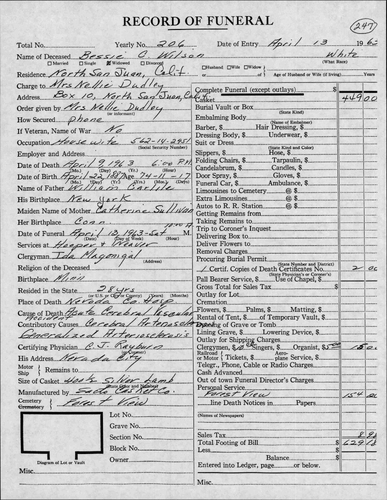 RECORD OF FUNERAL
247
Total No. Yearly No. 206 Date of Entry April 13 1963
Name of Deceased Bessie C. Wilson White
Married Single Widowed Divorced Husband Wife Widow (What Race)
Residence North San Juan, Calif. of Age of Husband or Wife (if living) Years
Charge to Mrs Nellie Dudley
Address Box 10, North San Juan, Calif.
Order given by Mrs Nellie Dudley
How Secured phone
If Veteran, Name of War No
Occupation Housewife
(Social Security Number)
Employer and Address
Date of Death April 9 1963 6:00 P.M.
Date of Birth April 22, 1888 Age 74-11-17
Name of Father William Carline
His Birthplace New York
Maiden Name of Mother Catherine Sullivan
Her Birthplace Conn.
Date of Funeral April 13, 1963-Sat M.
Services at Hooper & Weaver
Clergyman Ida Magonigal
Religion of the Deceased
Birthplace Minn
Resided in the State 28 yrs
Place of Death Nevada Co Hosp
Cause of Death Acute Cerebral Vascular
Contributory Causes Cerebral Arteriosclerosis
Generalized Arteriosclerosis
Certifying Physician C.J. Rayburn
His Address Nevada City
Motor Ship Remains to
Size of Casket Silver Lamb
Manufactured by Casket Co.
Cemetery Crematory Forest View
Lot No.
Grave No.
Section No.
Block No.
Owner
Diagram of Lot or Vault
Misc.
Complete Funeral (except outlays) $
Casket 449 00
Burial Vault or Box
(State Kind)
Embalming Body
(Name of Embalmer)
Barber, $ Hair Dressing, $
Dressing Body, $ Underwear, $
Suit or Dress
(State Kind and Color)
Slippers, $ Hose, $
Folding Chairs, $ Tarpaulin, $
Candelabrum, $ Candles, $
Door Spray, $ Gloves, $
Funeral Car, $ Ambulance, $
Limousines to Cemetery @ $
Extra Limousines @ $
Autos to R. R. Station @ $
Getting Remains
Taking Remains to
Trip to Coroner's Inquest
Delivering Box to
Deliver Flowers to
Removal Charges
Procuring Burial Permit
(State Physician's or Coroner's)
1 Certif. Copies of Death Certificates No. 2 00
Pall Bearer Service, $ Use of Chapel, $
Gross Total for Sales Tax $
Outlay for Lot
Cremation
Flowers, $ Palms, $ Matting, $
Rental of Tent, $ of Temporary Vault, $
Opening of Grave or Tomb
Lining Grave, $ Lowering Device, $
Outlay for Shipping Charges
Clergymen, $ 10 Singers, $ Organist, $ 5.00 15 00
Railroad Motor Tickets, $ Aeroplane Service, $
Telegr., Phone, Cable or Radio Charges
Cash Advanced
Out of town Funeral Director's Charges
Personal Service
Forest View 154 00
line Death Notices in Papers
(Names of Newspapers)
Sales Tax 8 98
Total Footing of Bill $ 629 18
Less $
Balance $
Entered into Ledger, page or below.
Misc.